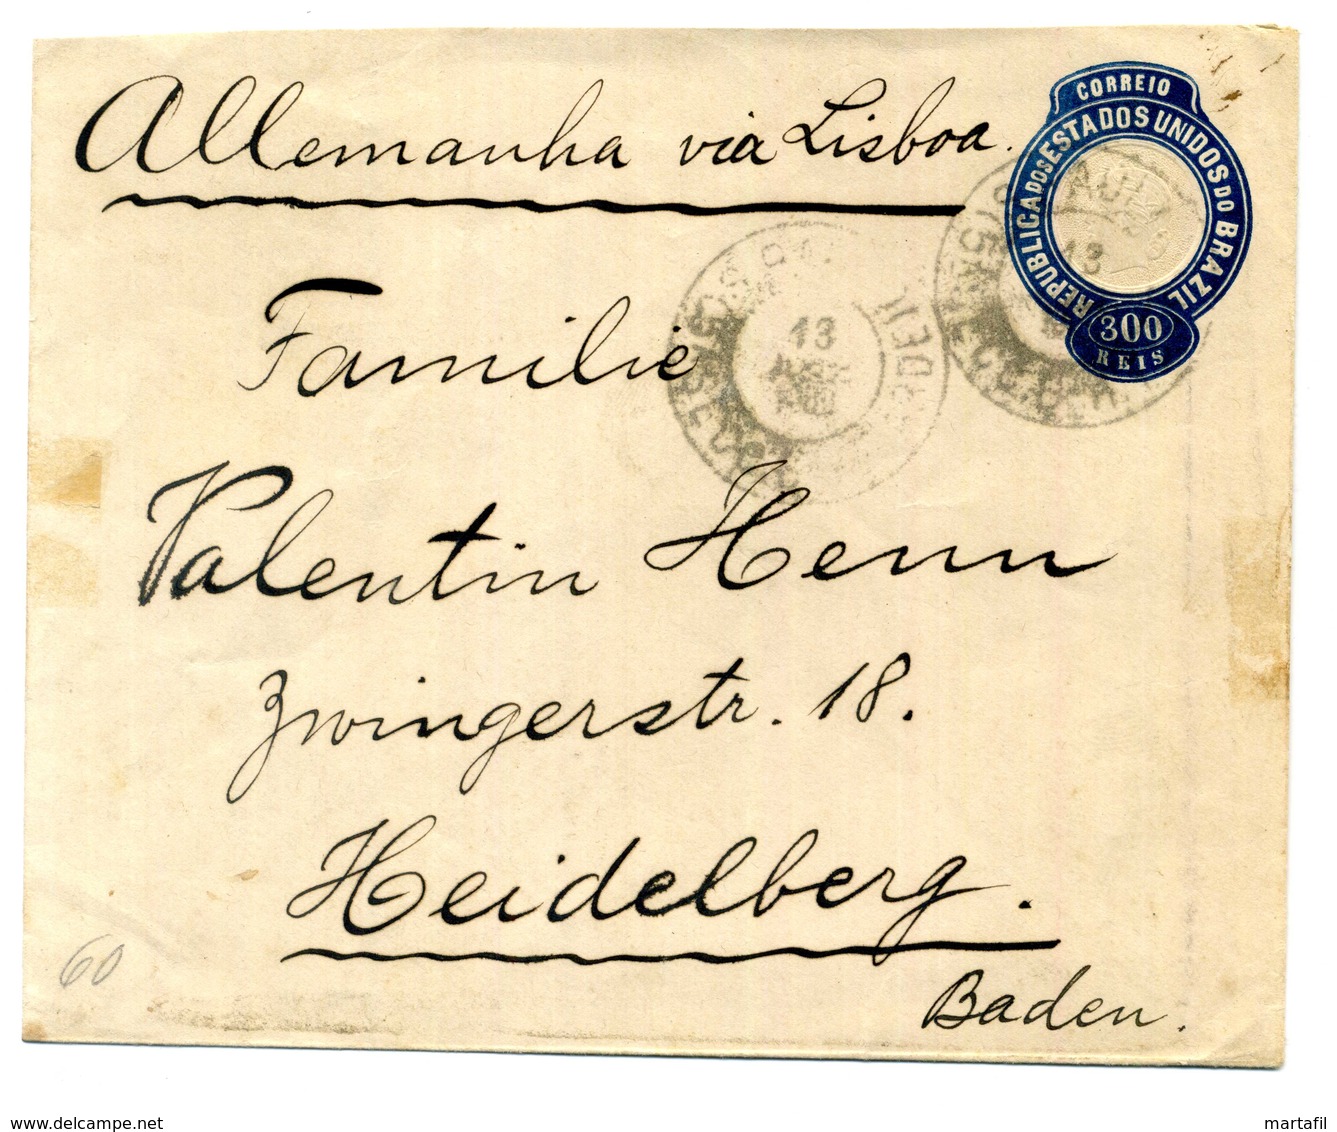 Allemanha via Lisboa.
CORREIO
REPUBLICA DOS ESTADOS UNIDOS DO BRAZIL
300
REIS
13
13
Familie
Valentin Henn
Zwingerstr. 18.
Heidelberg.
Baden.
60
www.delcampe.net
martafil